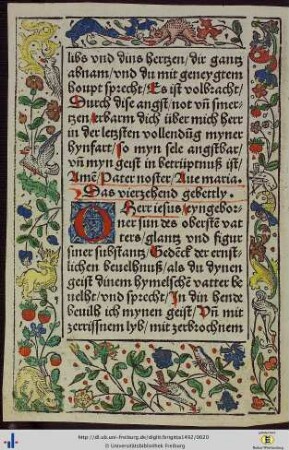 libs vnd dins hertzen/dir gantz
abnam/vnd du mit geneygtem
houpt sprecht/Es ist volbracht/
Durch dise angst/not vn̄ smer-
tzen/erbarm dich über mich herr
in der letzsten vollendūg myner
hynfart/so myn sele angstbar/
vn̄ myn geist in betrüptnuß ist/
Amē/Pater noster/Aue maria.
Das vierzehend gebettly.
O Herr iesus/eyngebor-
ner sun des oberstē vat
ters/glantz vnd figur
siner substantz/Gedēck der ernst-
lichen beuelhnuß/als du dynen
geist dinem hymelschē vatter be
uelht/vnd sprecht/In din hende
beuilh ich mynen geist/Vn̄ mit
zerrissnem lyb/mit zerbrochnem
http://dl.ub.uni-freiburg.de/diglit/brigitta1492/0020
© Universitätsbibliothek Freiburg